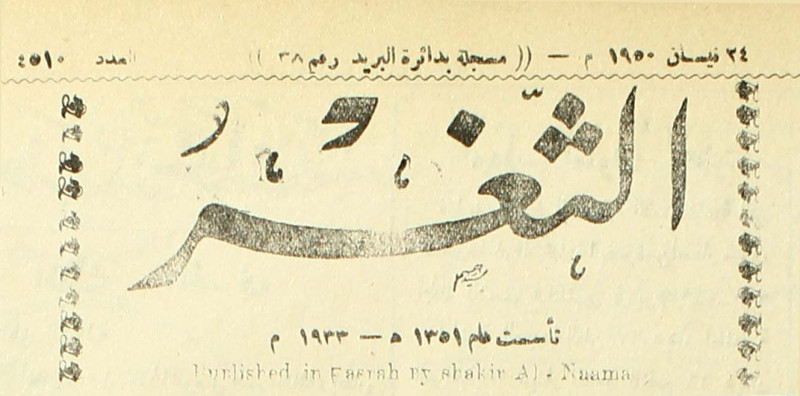 ٢٤ نيسان ١٩٥٠ م — (( مسجلة بدائرة البريد رقم ٣٨ )) العدد ٤٥١٠
الثّغر
تأسست عام ١٣٥١ ه — ١٩٣٣ م
Purlished in Basrah By shakir Al - Naama